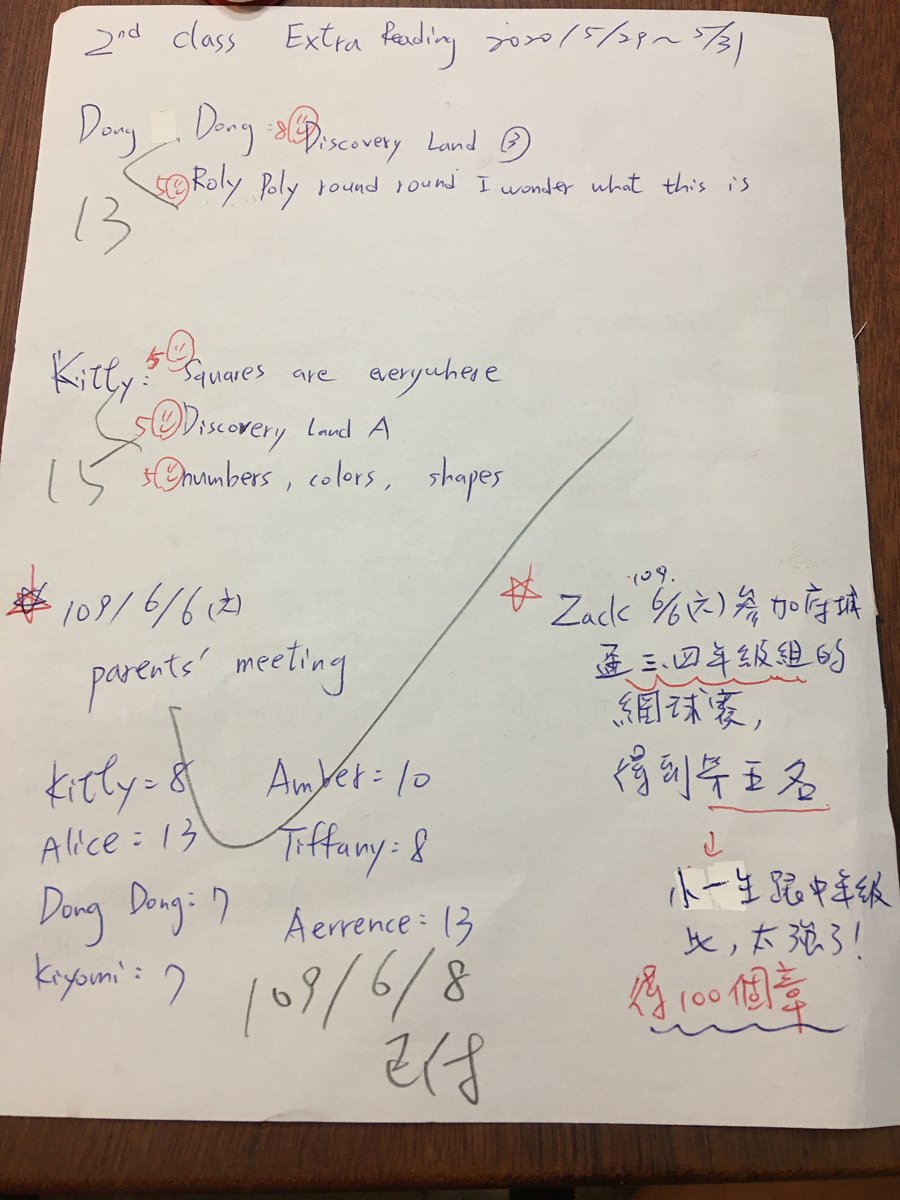 2nd class Extra Reading 2020/5/29~5/31
Dong Dong: 8 Discovery Land ③
5 Roly Poly round round I wonder what this is
13
Kitty: 5 Squares are everywhere
5 Discovery Land A
15
5 numbers, colors, shapes
109/6/6(六)
parents' meeting
Kitty=8 Amber=10
Alice=13 Tiffany=8
Dong Dong=7 Aerrence=13
Kiyomi=7
109/6/8
已付
109.
Zack 6/6(六)參加府城
盃三、四年級組的
網球賽,
得到第五名
↓
小一生跟中年級
比,太強了!
得100個章